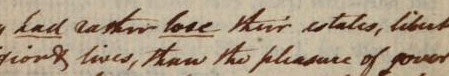 had rather lose their estates, libert
gion & lives, than the pleasure of gover